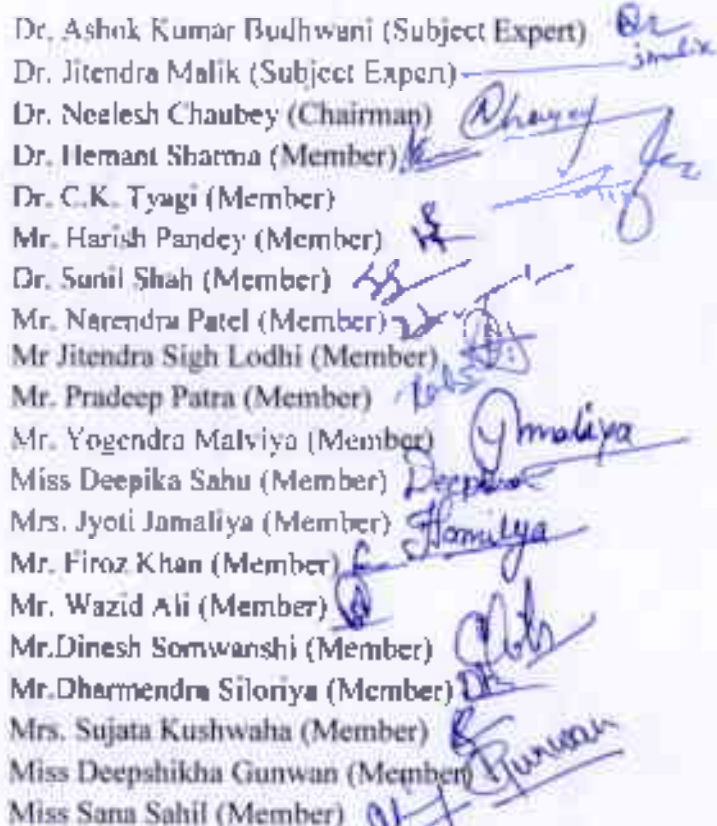 Dr. Ashok Kumar Budhwani (Subject Expert)
Dr. Jitendra Malik (Subject Expert) jmalik
Dr. Neelesh Chaubey (Chairman)
Dr. Hemant Sharma (Member)
Dr. C.K. Tyagi (Member)
Mr. Harish Pandey (Member)
Dr. Sunil Shah (Member)
Mr. Narendra Patel (Member)
Mr Jitendra Sigh Lodhi (Member)
Mr. Pradeep Patra (Member)
Mr. Yogendra Malviya (Member)
Miss Deepika Sahu (Member)
Mrs. Jyoti Jamaliya (Member)
Mr. Firoz Khan (Member)
Mr. Wazid Ali (Member)
Mr.Dinesh Somwanshi (Member)
Mr.Dharmendra Siloriya (Member)
Mrs. Sujata Kushwaha (Member)
Miss Deepshikha Gunwan (Member)
Miss Sana Sahil (Member)